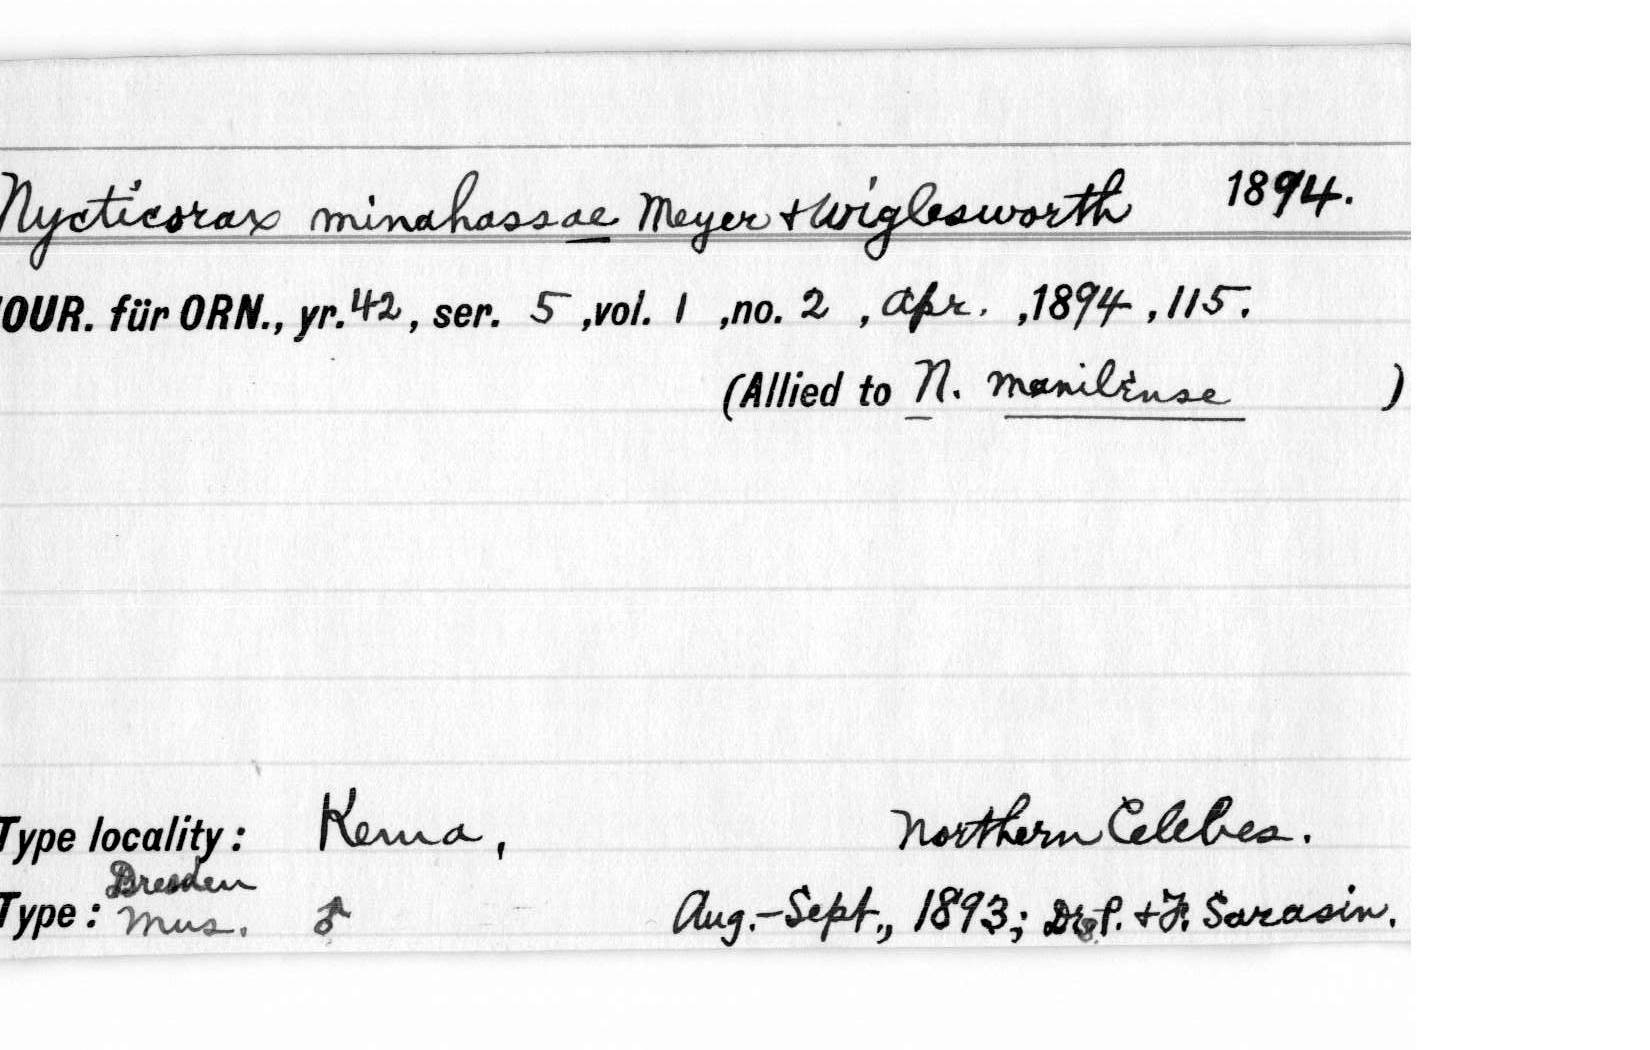 Nycticorax minahassae Meyer + Wiglesworth 1894.
OUR. für ORN., yr. 42, ser. 5, vol. 1, no. 2, Apr., 1894, 115.
(Allied to N. manilense)
Type locality: Kema, Northern Celebes.
Dresden
Type: Mus. ♂ Aug.-Sept., 1893; Drs. P. + F. Sarasin.